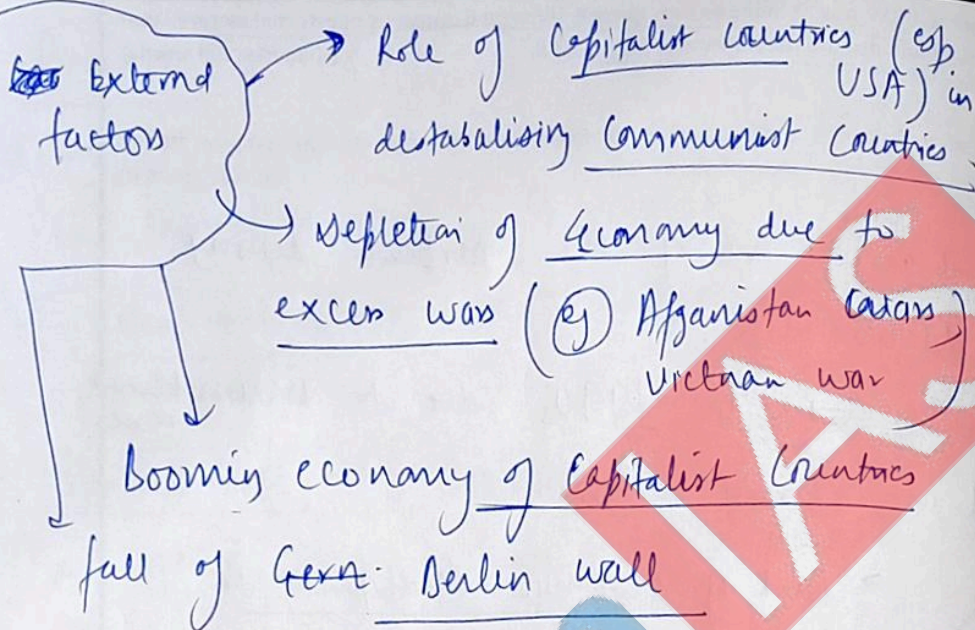 External
factors
Role of Capitalist Countries (esp
USA) in
destabalising Communist Countries
Depletion of Economy due to
excess wars (eg Afganistan
Vietnam war)
Booming economy of Capitalist Countries
fall of Germ. Berlin wall
IAS